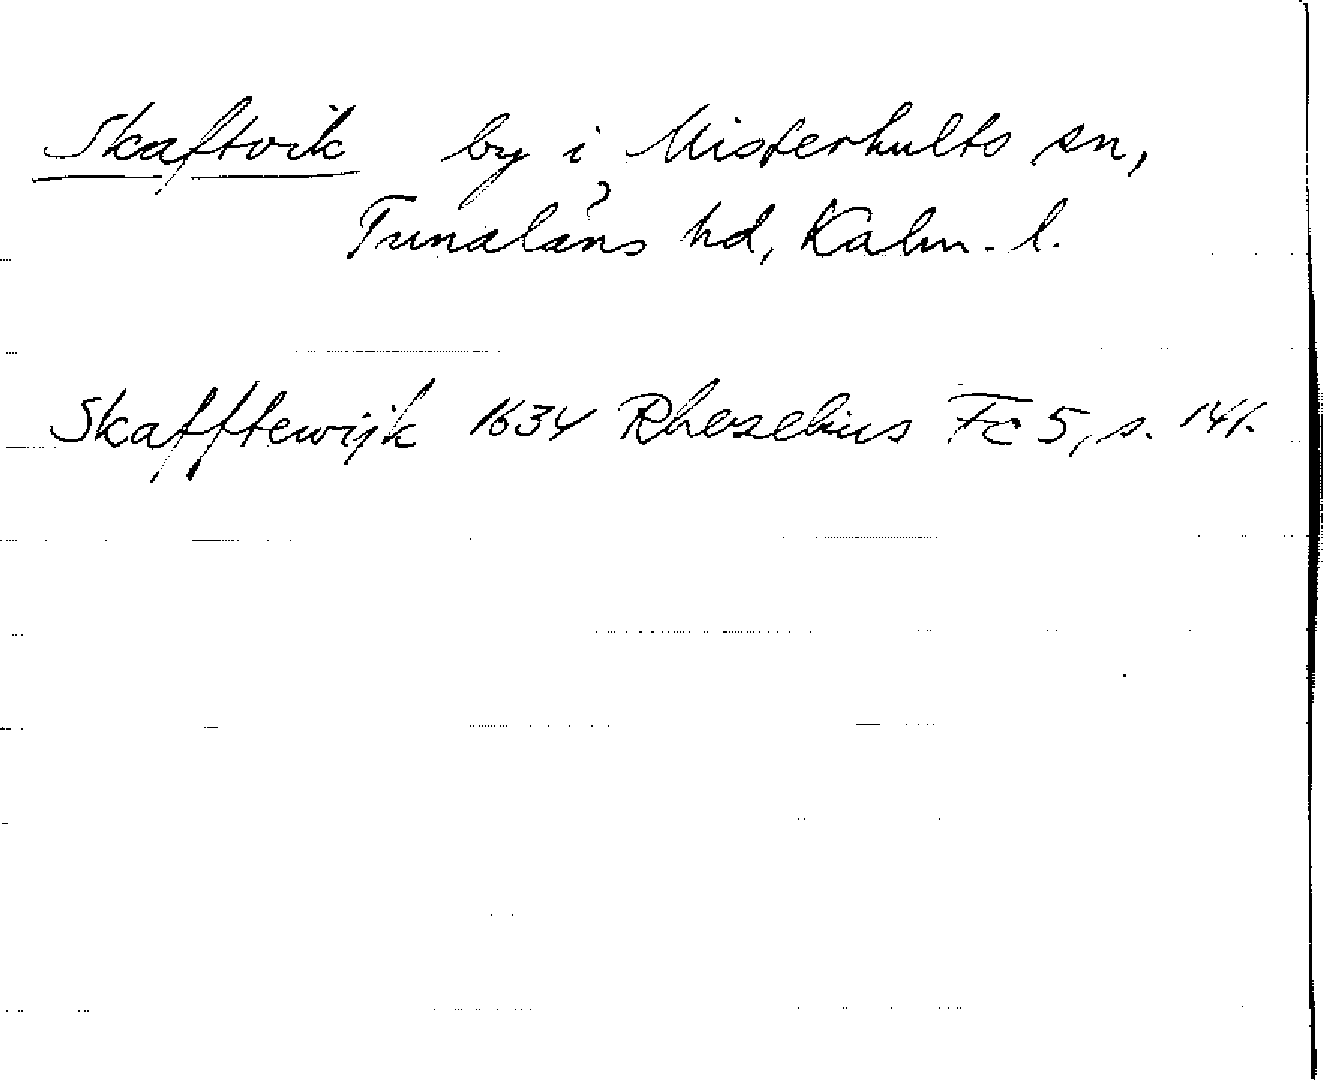 Skaftvik by i Misterhults sn,
Tunaläns hd, Kalm. l.
Skafftewijk 1634 Rhezelius Fc 5, s. 141.